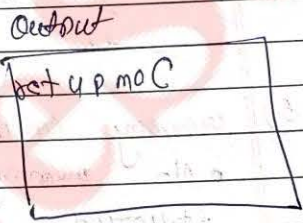 Output
ret u p mo C